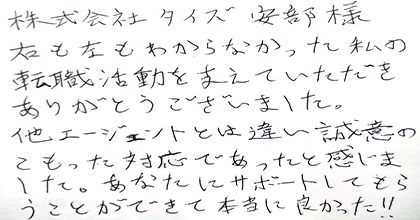 株式会社タイズ 安部様
右も左もわからなかった私の
転職活動を支えていただき
ありがとうございました。
他エージェントとは違い誠意の
こもった対応であったと感じま
した。あなたにサポートしてもら
うことができて本当に良かった!!